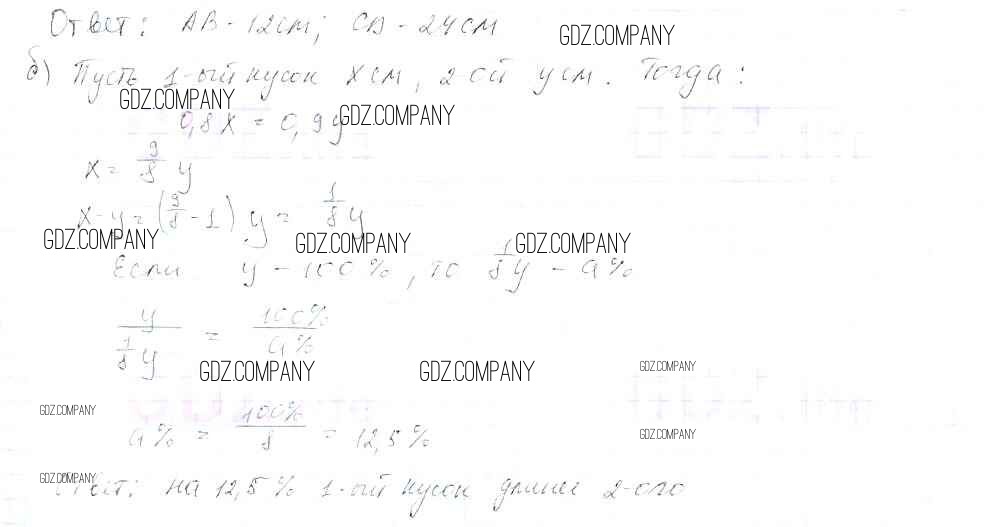 Ответ: AB - 12см; CD - 24см
GDZ.COMPANY
б) Пусть 1-ый кусок x см, 2-ой y см. Тогда:
GDZ.COMPANY
0,8x = 0,9y
GDZ.COMPANY
x = 9/8 y
x-y = (9/8 - 1) y = 1/8 y
GDZ.COMPANY GDZ.COMPANY GDZ.COMPANY
Если y - 100%, то 1/8 y - a%
y / 1/8 y = 100% / a%
GDZ.COMPANY GDZ.COMPANY GDZ.COMPANY
GDZ.COMPANY
a% = 100% / 8 = 12,5%
GDZ.COMPANY
GDZ.COMPANY
Ответ: на 12,5% 1-ый кусок длинее 2-ого